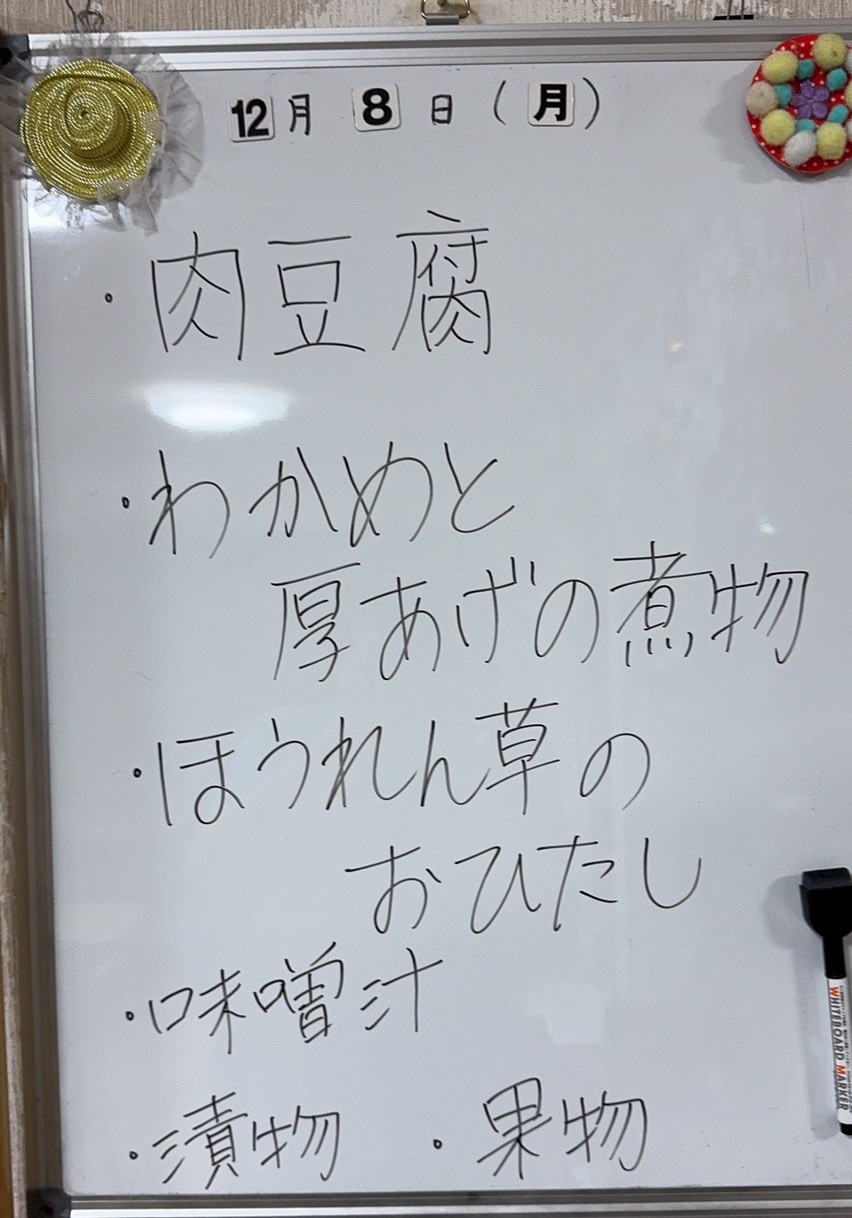 12月 8日 (月)
・肉豆腐
・わかめと
厚あげの煮物
・ほうれん草の
おひたし
・味噌汁
・漬物 ・果物
WHITEBOARD MARKER